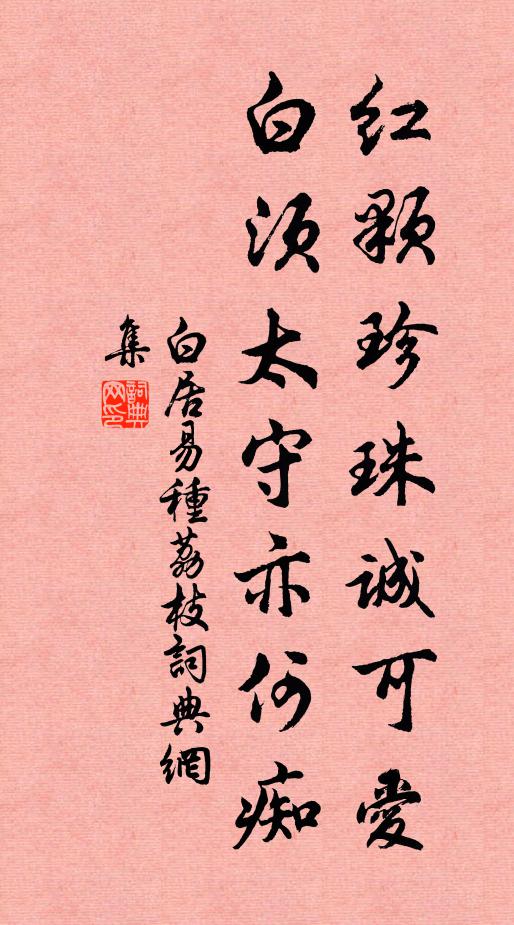 红颗珍珠诚可爱
白须太守亦何痴
白居易種荔枝詞典網
集
詞典網印